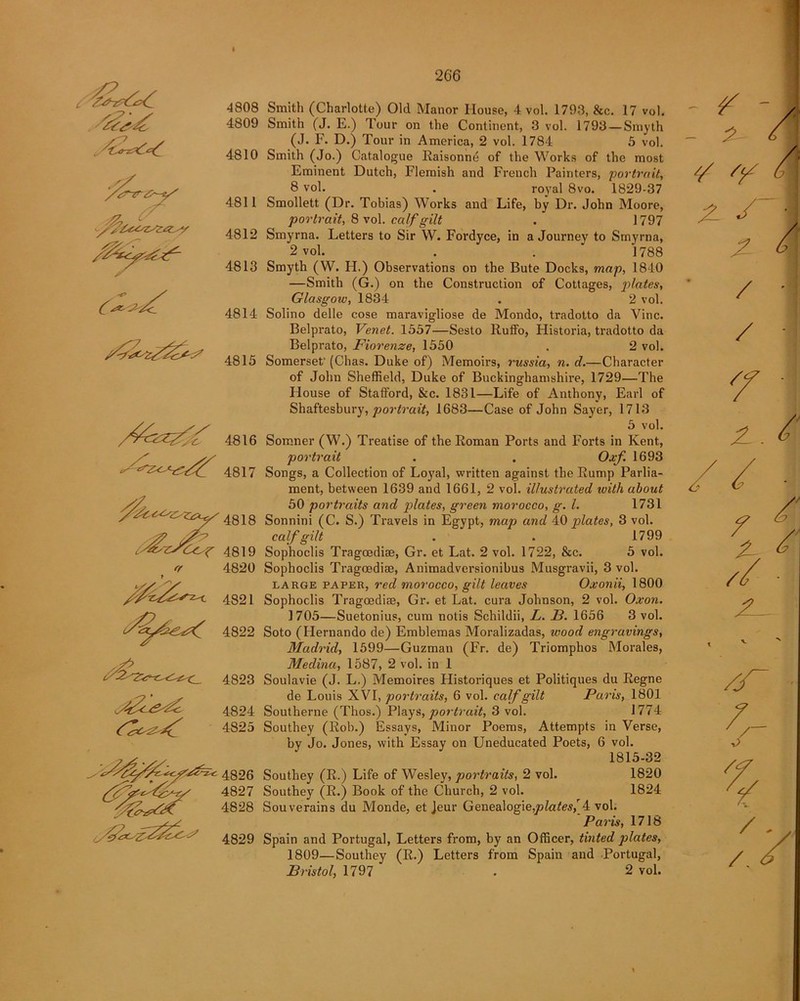 266
4808 Smith (Charlotte) Old Manor House, 4 vol. 1793, &c. 17 vol.
4809 Smith (J. E.) Tour on the Continent, 3 vol. 1793—Smyth
(J. F. D.) Tour in America, 2 vol. 1784 5 vol.
4810 Smith (Jo.) Catalogue Raisonné of the Works of the most
Eminent Dutch, Flemish and French Painters, portrait,
8 vol. . royal 8vo. 1829-37
4811 Smollett (Dr. Tobias) Works and Life, by Dr. John Moore,
portrait, 8 vol. calf gilt . 1797
4812 Smyrna. Letters to Sir W. Fordyce, in a Journey to Smyrna,
2 vol. . . 1788
4813 Smyth (W. H.) Observations on the Bute Docks, map, 1840
—Smith (G.) on the Construction of Cottages, plates,
Glasgow, 1834 . 2 vol.
4814 Solino delle cose maravigliose de Mondo, tradotto da Vinc.
Belprato, Venet. 1557—Sesto Ruffo, Historia, tradotto da
Belprato, Fiorenze, 1550 . 2 vol.
4815 Somerset (Chas. Duke of) Memoirs, russia, n. d.—Character
of John Sheffield, Duke of Buckinghamshire, 1729—The
House of Stafford, &c. 1831—Life of Anthony, Earl of
Shaftesbury, portrait, 1683—Case of John Sayer, 1713
5 vol.
4816 Somner (W.) Treatise of the Roman Ports and Forts in Kent,
portrait . . Oxf. 1693
4817 Songs, a Collection of Loyal, written against the Rump Parlia-
ment, between 1639 and 1661, 2 vol. illustrated with about
50 portraits and plates, green morocco, g. l. 1731
4818 Sonnini (C. S.) Travels in Egypt, map and 40 plates, 3 vol.
calf gilt . . 1799
4819 Sophoclis Tragœdiæ, Gr. et Lat. 2 vol. 1722, &c. 5 vol.
4820 Sophoclis Tragœdiæ, Animadversionibus Musgravii, 3 vol.
LARGE PAPER, red morocco, gilt leaves Oxonii, 1800
4821 Sophoclis Tragœdiæ, Gr. et Lat. cura Johnson, 2 vol. Oxon.
1705—Suetonius, cum notis Schildii, L. B. 1656 3 vol.
4822 Soto (Hernando de) Emblemas Moralizadas, wood engravings,
Madrid, 1599—Guzman (Fr. de) Triomphos Morales,
Medina, 1587, 2 vol. in 1
4823 Soulavie (J. L.) Memoires Historiques et Politiques du Regne
de Louis XVI, portraits, 6 vol. calf gilt Paris, 1801
4824 Southerne (Thos.) Plays, portrait, 3 vol. 1774
4825 Southey (Rob.) Essays, Minor Poems, Attempts in Verse,
by Jo. Jones, with Essay on Uneducated Poets, 6 vol.
1815-32
4826 Southey (R.) Life of Wesley, portraits, 2 vol. 1820
4827 Southey (R.) Book of the Church, 2 vol. 1824
4828 Souverains du Monde, et leur Genealogie, plates, 4 vol.
Paris, 1718
4829 Spain and Portugal, Letters from, by an Officer, tinted plates,
1809—Southey (R.) Letters from Spain and Portugal,
Bristol, 1797 . 2 vol.